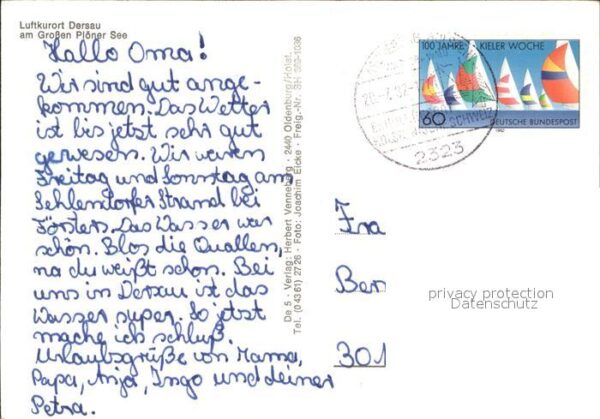 Luftkurort Dersau
am Großen Plöner See
Hallo Oma!
Wir sind gut ange-
kommen. Das Wetter
ist bis jetzt sehr gut
gewesen. Wir waren
Freitag und Sonntag am
Sehlendorfer Strand bei
Försters. Das Wasser war
schön. Blos die Quallen,
na du weißt schon. Bei
uns in Dersau ist das
Wasser super. So jetzt
mache ich schluß.
Urlaubsgrüße von Mama,
Papa, Anja, Ingo und deiner
Petra.
De 5 · Verlag: Herbert Venneberg · 2440 Oldenburg/Holst.
Tel. (04361) 2726 · Foto: Joachim Eicke · Freig.-Nr. SH 989-1036
100 JAHRE KIELER WOCHE
60 DEUTSCHE BUNDESPOST
SCHWEIZ
2323
Fra
Ber
301
privacy protection
Datenschutz